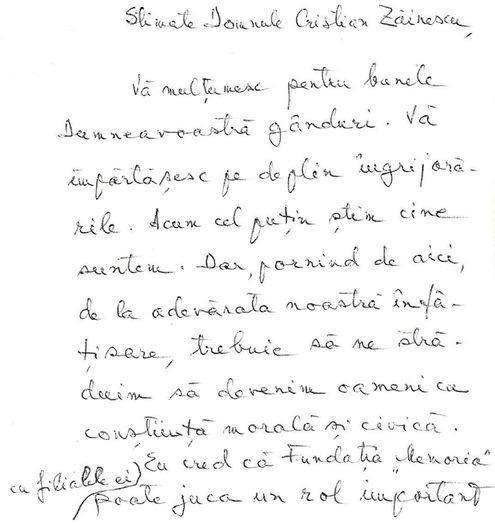 Stimate Domnule Cristian Zăinescu,
Vă mulțumesc pentru bunele
Dumneavoastră gânduri. Vă
împărtășesc pe deplin îngrijoră-
rile. Acum cel puțin știm cine
suntem. Dar, pornind de aici,
de la adevărata noastră înfă-
țișare, trebuie să ne stră-
duim să devenim oameni cu
conștiință morală și civică.
Eu cred că Fundația „Memoria"
cu filialele ei) poate juca un rol important